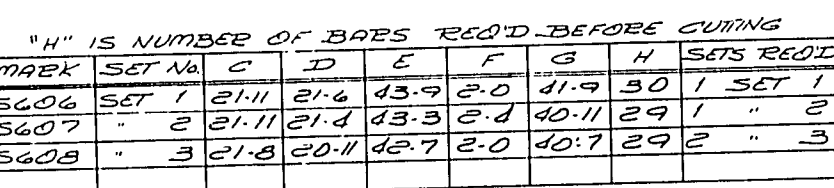 "H" IS NUMBER OF BARS REQ'D BEFORE CUTTING
MARK SET No. C D E F G H SETS REQ'D
S606 SET 1 21-11 21-6 43-9 2-0 41-9 30 1 SET 1
S607 " 2 21-11 21-4 43-3 2-4 40-11 29 1 " 2
S608 " 3 21-8 20-11 42-7 2-0 40-7 29 2 " 3